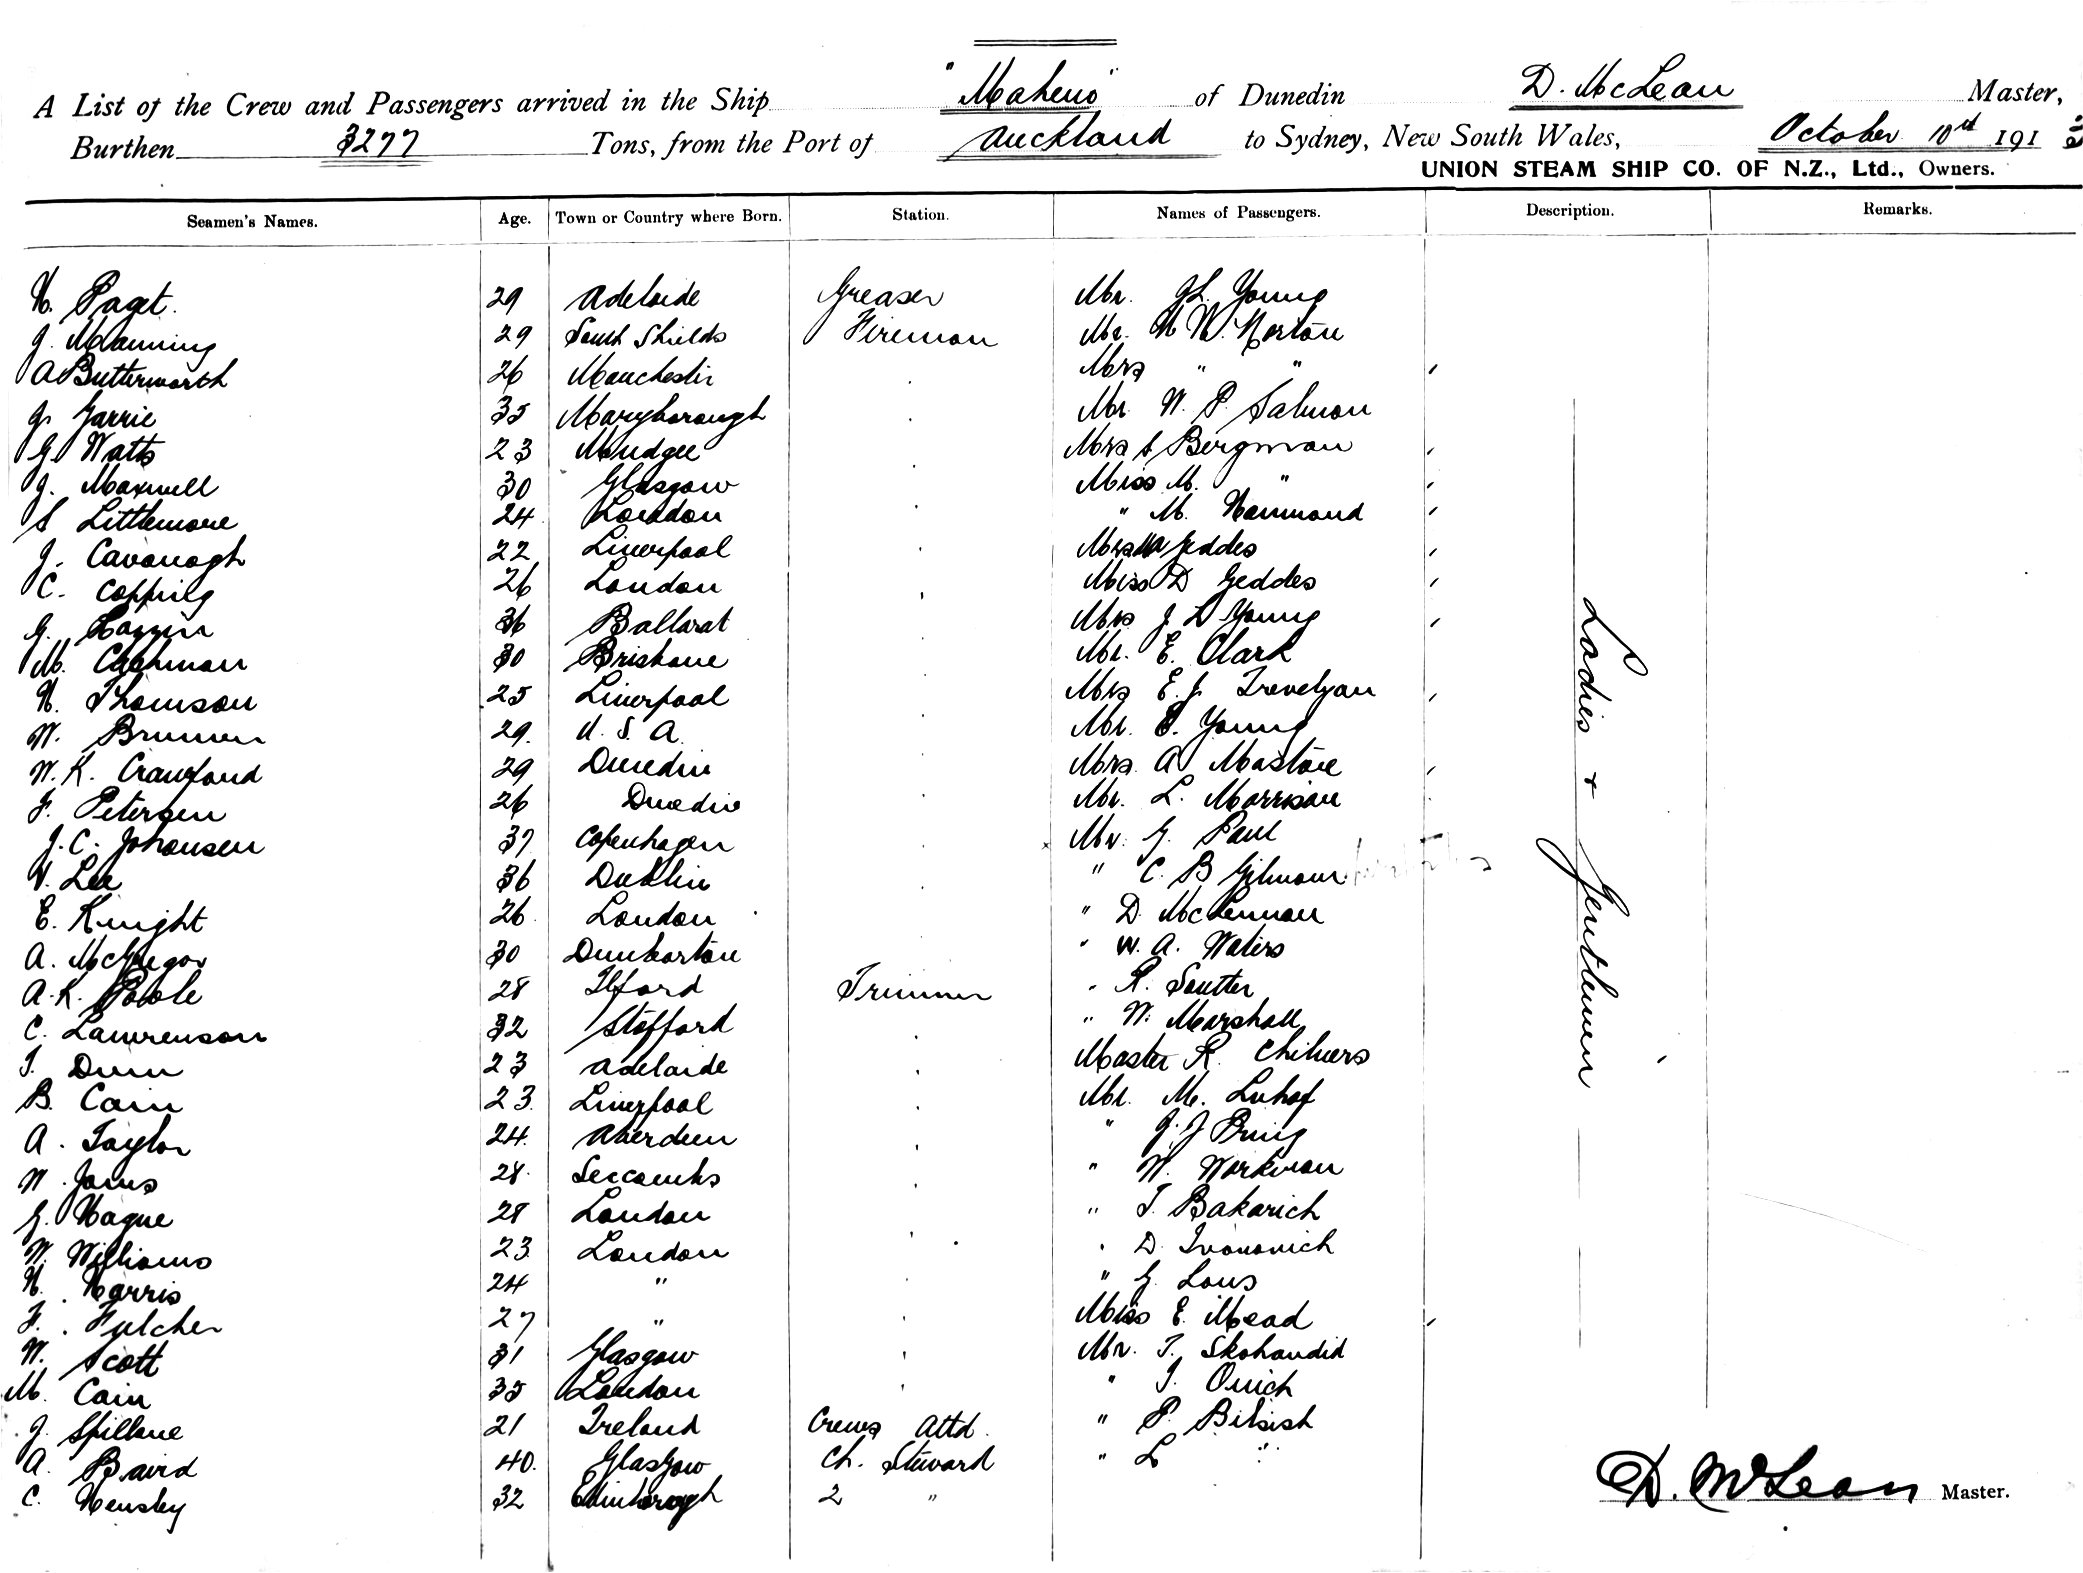 A List of the Crew and Passengers arrived in the Ship "Maheno" of Dunedin D. McLean Master,
Burthen 3277 Tons, from the Port of Auckland to Sydney, New South Wales, October 10th 191
UNION STEAM SHIP CO. OF N.Z., Ltd., Owners.
Seamen's Names. Age. Town or Country where Born. Station. Names of Passengers. Description. Remarks.
H. Paget. 29 Adelaide Greaser Mr. J L. Young
J. Manning 29 South Shields Fireman Mr. H W. Norton
A Butterworth 26 Manchester Mrs " "
J. Garrie 35 Maryborough Mr W. P. Salmon
G. Watts 23 Mudgee Mrs S Bergman
J. Maxwell 30 Glasgow Miss M. "
S Littlemore 24 London " M. Hammond
J. Cavanagh 22 Liverpool Mrs Geddes
C. Copping 26 London Miss D Geddes
G. 36 Ballarat Mrs J L Young
M. Cashman 30 Brisbane Mr. E. Clark
H. Thomson 25 Liverpool Mrs E. J. Trevelyan
W. 29. U. S. A. Mr. E. Young
W. K. Crawford 29 Dunedin Mrs. A
F. Petersen 26 Dunedin Mr. L. Morrison
J. C. Johansen 37 Copenhagen Mr. G. Paul
V. Lee 36 Dublin " C. B Gilmour
E. Knight 26 London " D. McLennan
A. McGregor 30 Dumbarton " W. A. Waters
A. K. Poole 28 Ilford Trimmer " R. Soutter
C. Lawrenson 32 Stafford " W. Marshall
T. Dunn 23 Adelaide Master R. Chilvers
B. Cain 23. Liverpool Mr. M.
A. Taylor 24. Aberdeen " J. J Pring
W. Jones 28. " W. Workman
G. Hague 28 London " T. Bakarich
W. Williams 23. London " D. Ivonovich
H. Harris 24 " " G.
F. Fulcher 27 " Miss E. Mead
W. Scott 31 Glasgow Mr. T.
M. Cain 35 London "
J. Spillane 21 Ireland Crews Attd. " P.
A. Baird 40. Glasgow Ch. Steward " L "
C. Hensley 32 Edinborough 2 "
Ladies & Gentlemen
D. McLean Master.